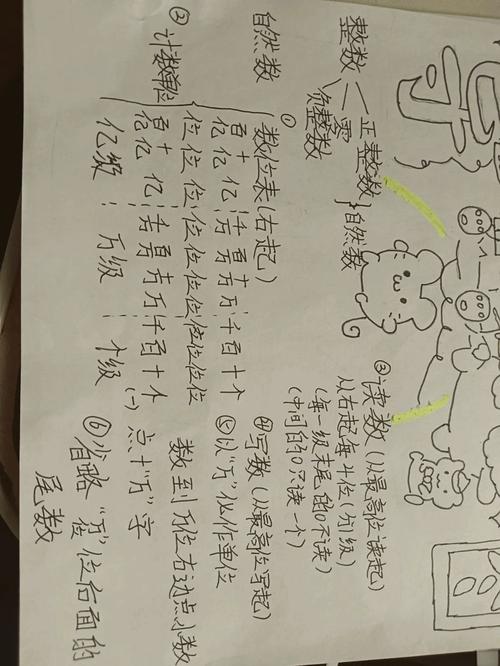 整数
正整数
零
负整数
自然数
自然数
① 数位表(右起)
百亿 十亿 亿 千万 百万 十万 万 千 百 十 个
位 位 位 位 位 位 位 位 位 位 位
② 计数单位
百亿 十亿 亿 千万 百万 十万 万 千 百 十 个(一)
亿级 万级 个级
③ 读数(从最高位读起)
从右起每4位(分级)
(每一级末尾的0不读)
(中间的0只读一个)
④ 写数(从最高位写起)
⑤ 以"万"作单位
数到万位右边点小数
点+"万"字
⑥ 省略"万"位后面的
尾数